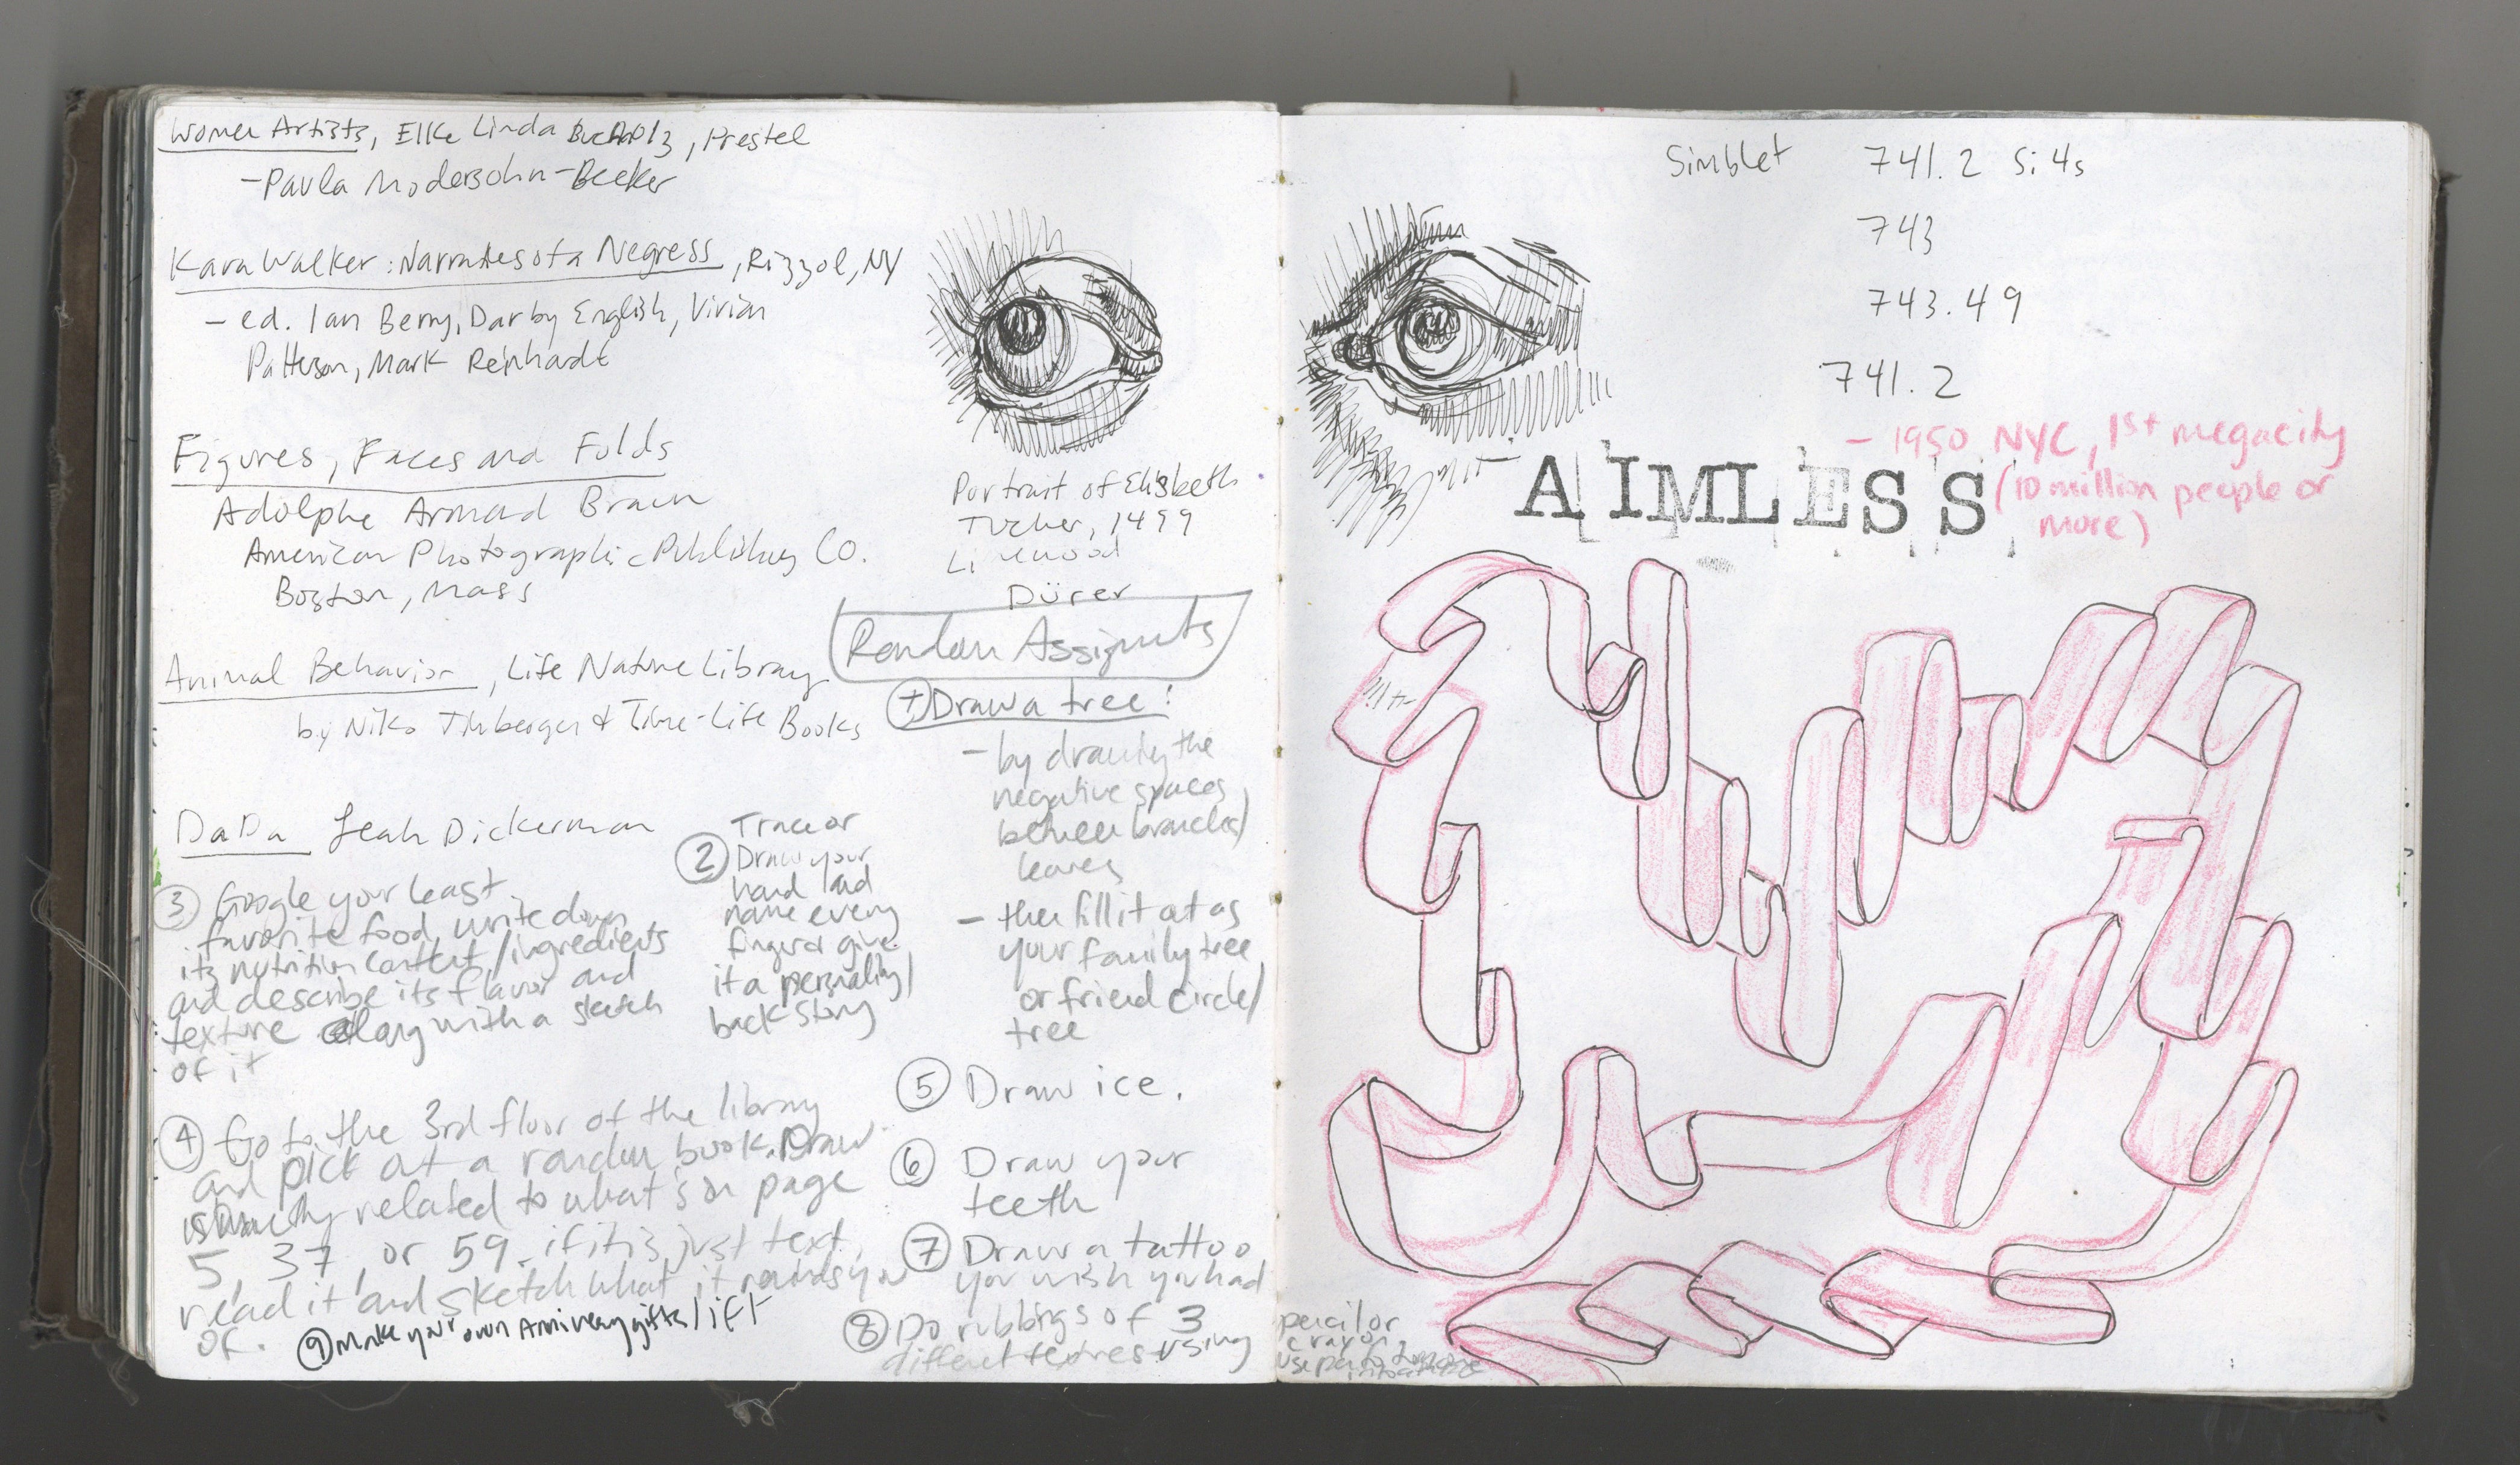 Women Artists, Elke Linda Buchholz, Prestel
- Paula Modersohn-Becker
Kara Walker: Narratives of a Negress, Rizzol, NY
- ed. Ian Berry, Darby English, Vivian
Patterson, Mark Reinhardt
Figures, Faces and Folds
Adolphe Armand Braun
American Photographic Publishing Co.
Boston, Mass
Animal Behavior, Life Nature Library
by Niko Tinbergen & Time-Life Books
DaDa Leah Dickerman
Portrait of Elisbeth
Tucher, 1499
Linewood
Dürer
Random Assignmts
1 Draw a tree:
- by drawing the
negative spaces
between branches/
leaves
- then fill it out as
your family tree
or friend circle/
tree
2 Trace or
Draw your
hand and
name every
finger & give
it a personality/
back story
3 Google your least
favorite food, write down
its nutrition content/ingredients
and describe its flavor and
texture along with a sketch
of it
4 Go to the 3rd floor of the library
and pick out a random book. Draw
related to what's on page
5, 37, or 59. if it is just text,
read it and sketch what it reminds you
of.
5 Draw ice.
6 Draw your
teeth
7 Draw a tattoo
you wish you had
8 Do rubbings of 3
different textures using
pencil or
crayon.
9 Make your own
Simblet 741.2 Si4s
743
743.49
741.2
- 1950 NYC, 1st megacity
(10 million people or
more)
AIMLESS